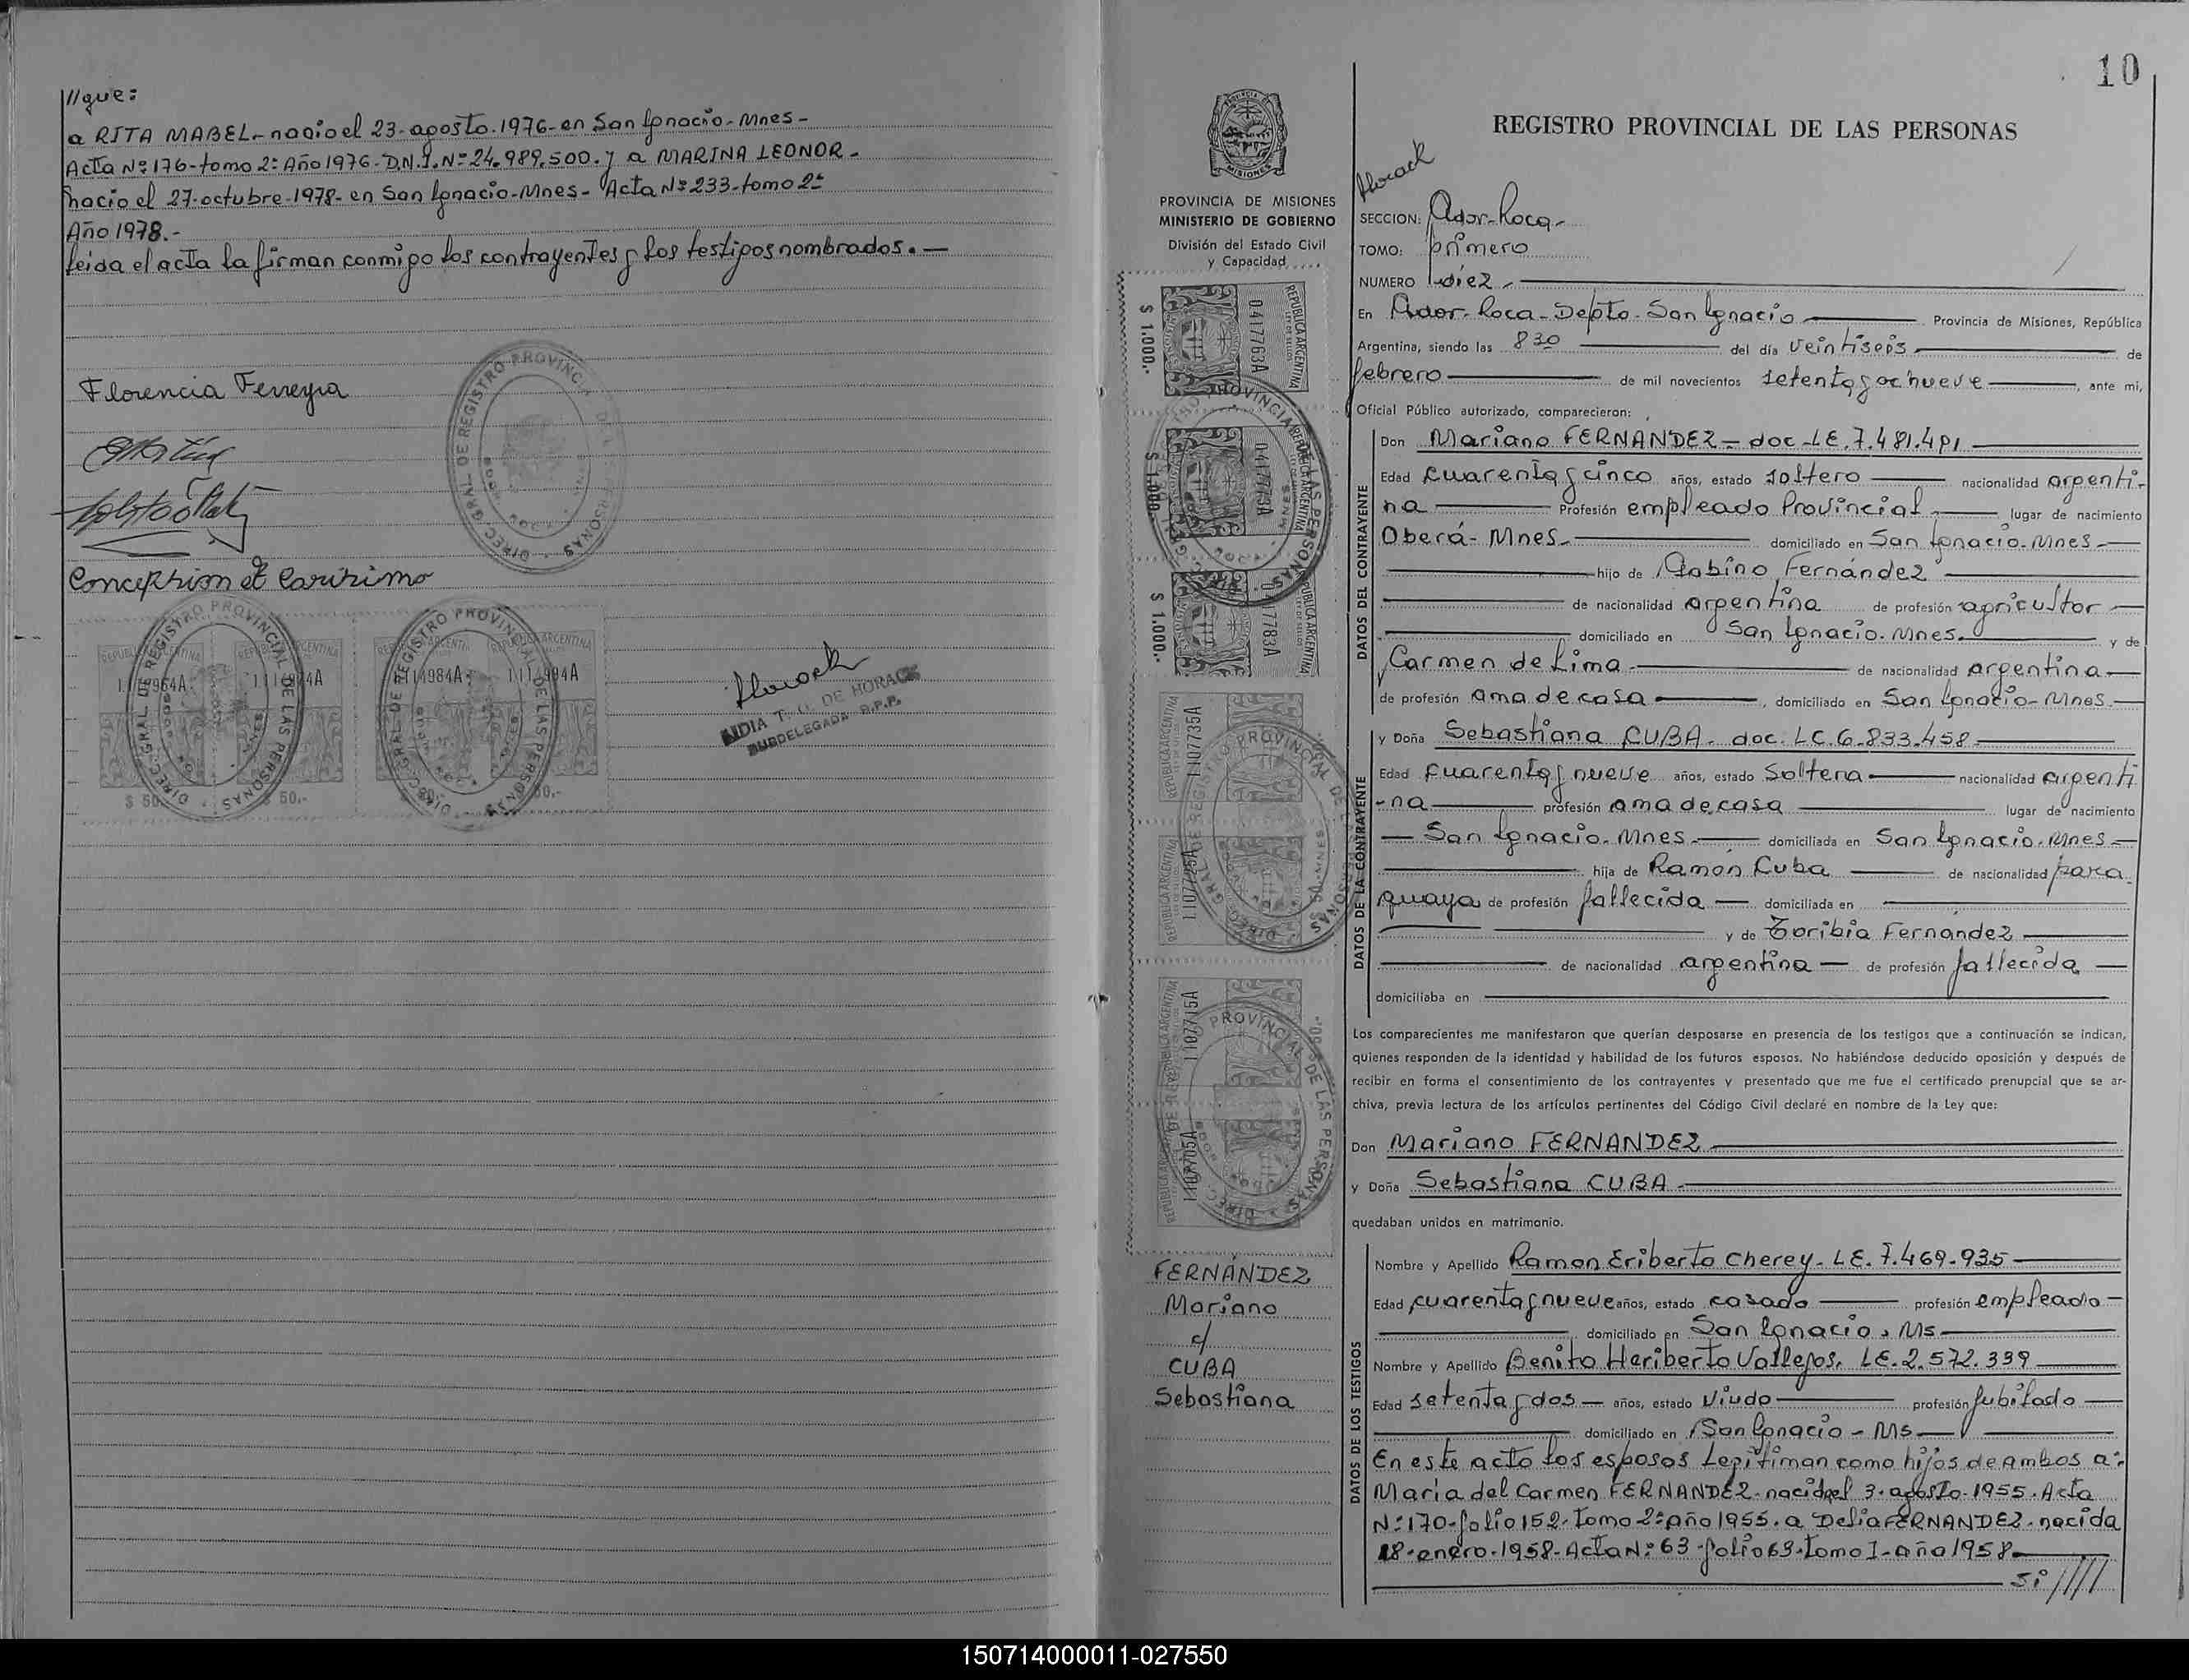 //que:
a RITA MABEL.- nacio el 23-agosto-1976-en San Ignacio-Mnes-
Acta Nº 176-tomo 2º Año 1976-D.N.I. Nº 24.989.500. y a MARINA LEONOR-
nacio el 27-octubre-1978-en San Ignacio-Mnes- Acta Nº 233-tomo 2º
Año 1978.-
leida el acta la firman conmigo los contrayentes y los testigos nombrados.-
Florencia Ferreyra
Concepcion Carisimo
REGISTRO PROVINCIAL DE LAS PERSONAS
DIREC. GRAL. DE
Horack
DE HORACK
SUBDELEGADA R.P.P.
10
REGISTRO PROVINCIAL DE LAS PERSONAS
PROVINCIA DE MISIONES
MINISTERIO DE GOBIERNO
División del Estado Civil
y Capacidad
REPUBLICA ARGENTINA
0417763A
$ 1.000.-
0417773A
$ 1.000.-
0417783A
$ 1.000.-
1107735A
1107725A
1107715A
1107705A
FERNÁNDEZ
Mariano
c/
CUBA
Sebastiana
Horack
SECCION: Gdor-Roca-
TOMO: primero
NUMERO diez.-
En Gdor-Roca-Depto-San Ignacio Provincia de Misiones, República
Argentina, siendo las 8 30 del día Veintiseis de
febrero de mil novecientos setenta y nueve, ante mi,
Oficial Público autorizado, comparecieron:
DATOS DEL CONTRAYENTE
Don Mariano FERNANDEZ- doc-LE.7.481.491
Edad cuarenta y cinco años, estado soltero nacionalidad argenti-
na Profesión empleado Provincial lugar de nacimiento
Oberá-Mnes- domiciliado en San Ignacio-Mnes-
hijo de Gabino Fernández
de nacionalidad argentina de profesión agricultor
domiciliado en San Ignacio-Mnes. y de
Carmen de Lima- de nacionalidad argentina
de profesión ama de casa, domiciliado en San Ignacio-Mnes.
DATOS DE LA CONTRAYENTE
y Doña Sebastiana CUBA- doc. LC.6.833.458-
Edad cuarenta y nueve años, estado Soltera nacionalidad argenti
-na profesión ama de casa lugar de nacimiento
San Ignacio-Mnes.- domiciliada en San Ignacio-Mnes-
hija de Ramon Cuba de nacionalidad para
guaya de profesión fallecida domiciliada en
y de Toribia Fernandez
de nacionalidad argentina de profesión fallecida
domiciliaba en
Los comparecientes me manifestaron que querían desposarse en presencia de los testigos que a continuación se indican,
quienes responden de la identidad y habilidad de los futuros esposos. No habiéndose deducido oposición y después de
recibir en forma el consentimiento de los contrayentes y presentado que me fue el certificado prenupcial que se ar-
chiva, previa lectura de los artículos pertinentes del Código Civil declaré en nombre de la Ley que:
Don Mariano FERNANDEZ
y Doña Sebastiana CUBA
quedaban unidos en matrimonio.
DATOS DE LOS TESTIGOS
Nombre y Apellido Ramon Eriberto Cherey- LE. 7.469-935
Edad cuarenta y nueve años, estado casado profesión empleado-
domiciliado en San Ignacio, Ms-
Nombre y Apellido Benito Heriberto Vallejos. LE.2.572.339
Edad setenta y dos años, estado Viudo profesión Jubilado
domiciliado en San Ignacio - Ms-
En este acto los esposos legitiman como hijos de ambos a:
Maria del Carmen FERNANDEZ-nacida el 3-agosto-1955-Acta
Nº 170-folio 152-Tomo 2º año 1955. a Delia FERNANDEZ-nacida
18-enero-1958-Acta Nº 63-folio 63-tomo I-año 1958
si////
150714000011-027550